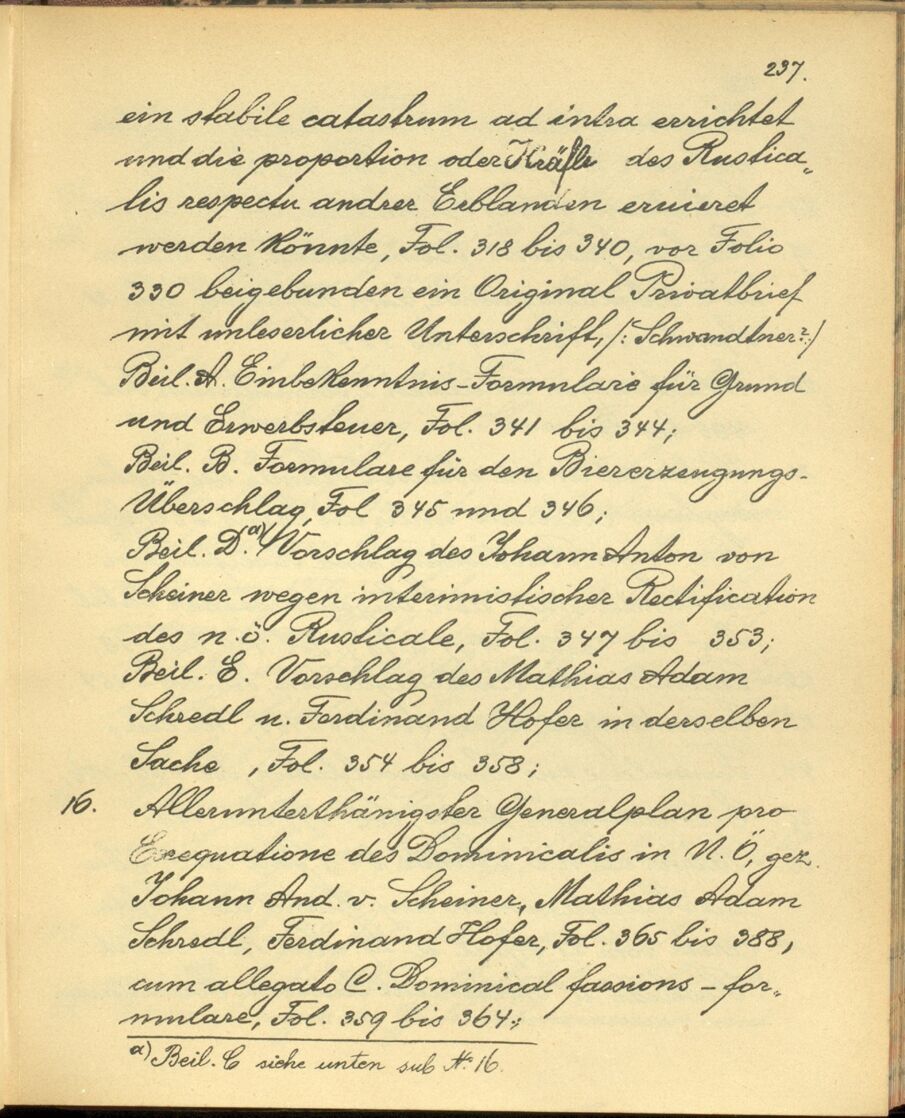 237.
ein stabile catastrum ad intra errichtet
und die proportion oder Kräfte des Rustica„
lis respectu andrer Erblanden eruieret
werden könnte, Fol. 318 bis 340, vor Folio
330 beigebunden ein Original Privatbrief
mit unleserlicher Unterschrift, /: Schwandtner? :/
Beil. A. Einbekenntnis-Formulare für Grund
und Erwerbsteuer, Fol. 341 bis 344;
Beil. B. Formulare für den Biererzeugungs-
Überschlag, Fol 345 und 346;
Beil. D.a) Vorschlag des Johann Anton von
Scheiner wegen interimistischer Rectification
des n. ö. Rusticale, Fol. 347 bis 353;
Beil. E. Vorschlag des Mathias Adam
Schredl u. Ferdinand Hofer in derselben
Sache , Fol. 354 bis 358;
16. Allerunterthänigster Generalplan pro
Exequatione des Dominicalis in N. Ö, gez.
Johann And. v. Scheiner, Mathias Adam
Schredl, Ferdinand Hofer, Fol. 365 bis 388,
cum allegato C. Dominical fassions - for„
mulare, Fol. 359 bis 364;
a) Beil. C siehe unten sub N: 16.